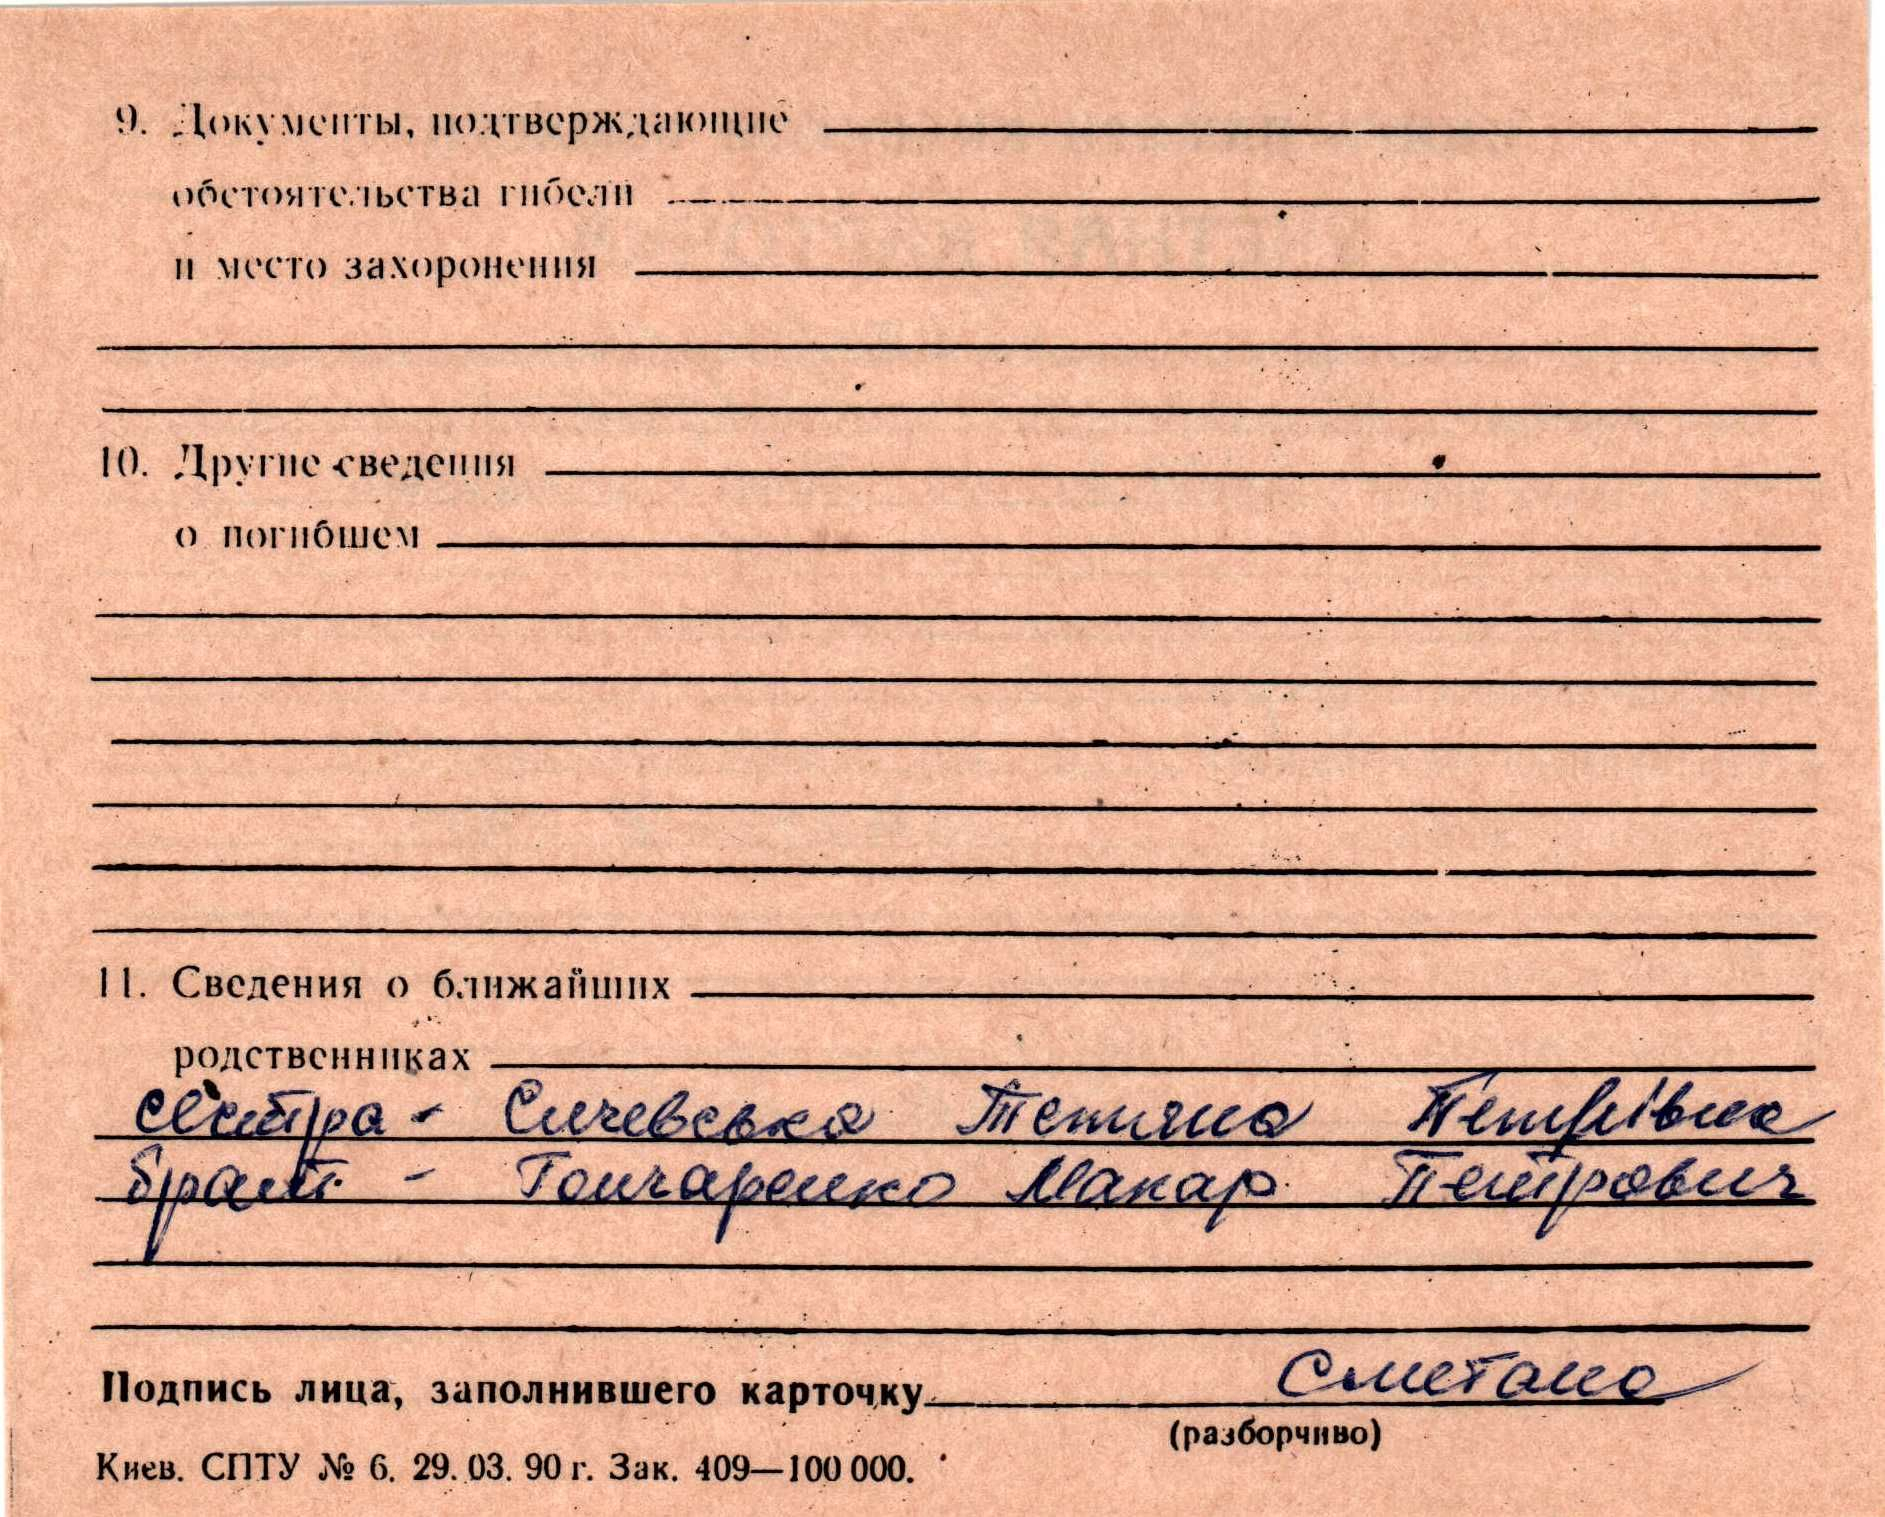 9. Документы, подтверждающие
обстоятельства гибели
и место захоронения
10. Другие сведения
о погибшем
11. Сведения о ближайших
родственниках
сестра - Сичевська Тетяна Петрівна
брат - Гончаренко Макар Петрович
Подпись лица, заполнившего карточку Сметана
(разборчиво)
Киев. СПТУ № 6. 29. 03. 90 г. Зак. 409—100 000.